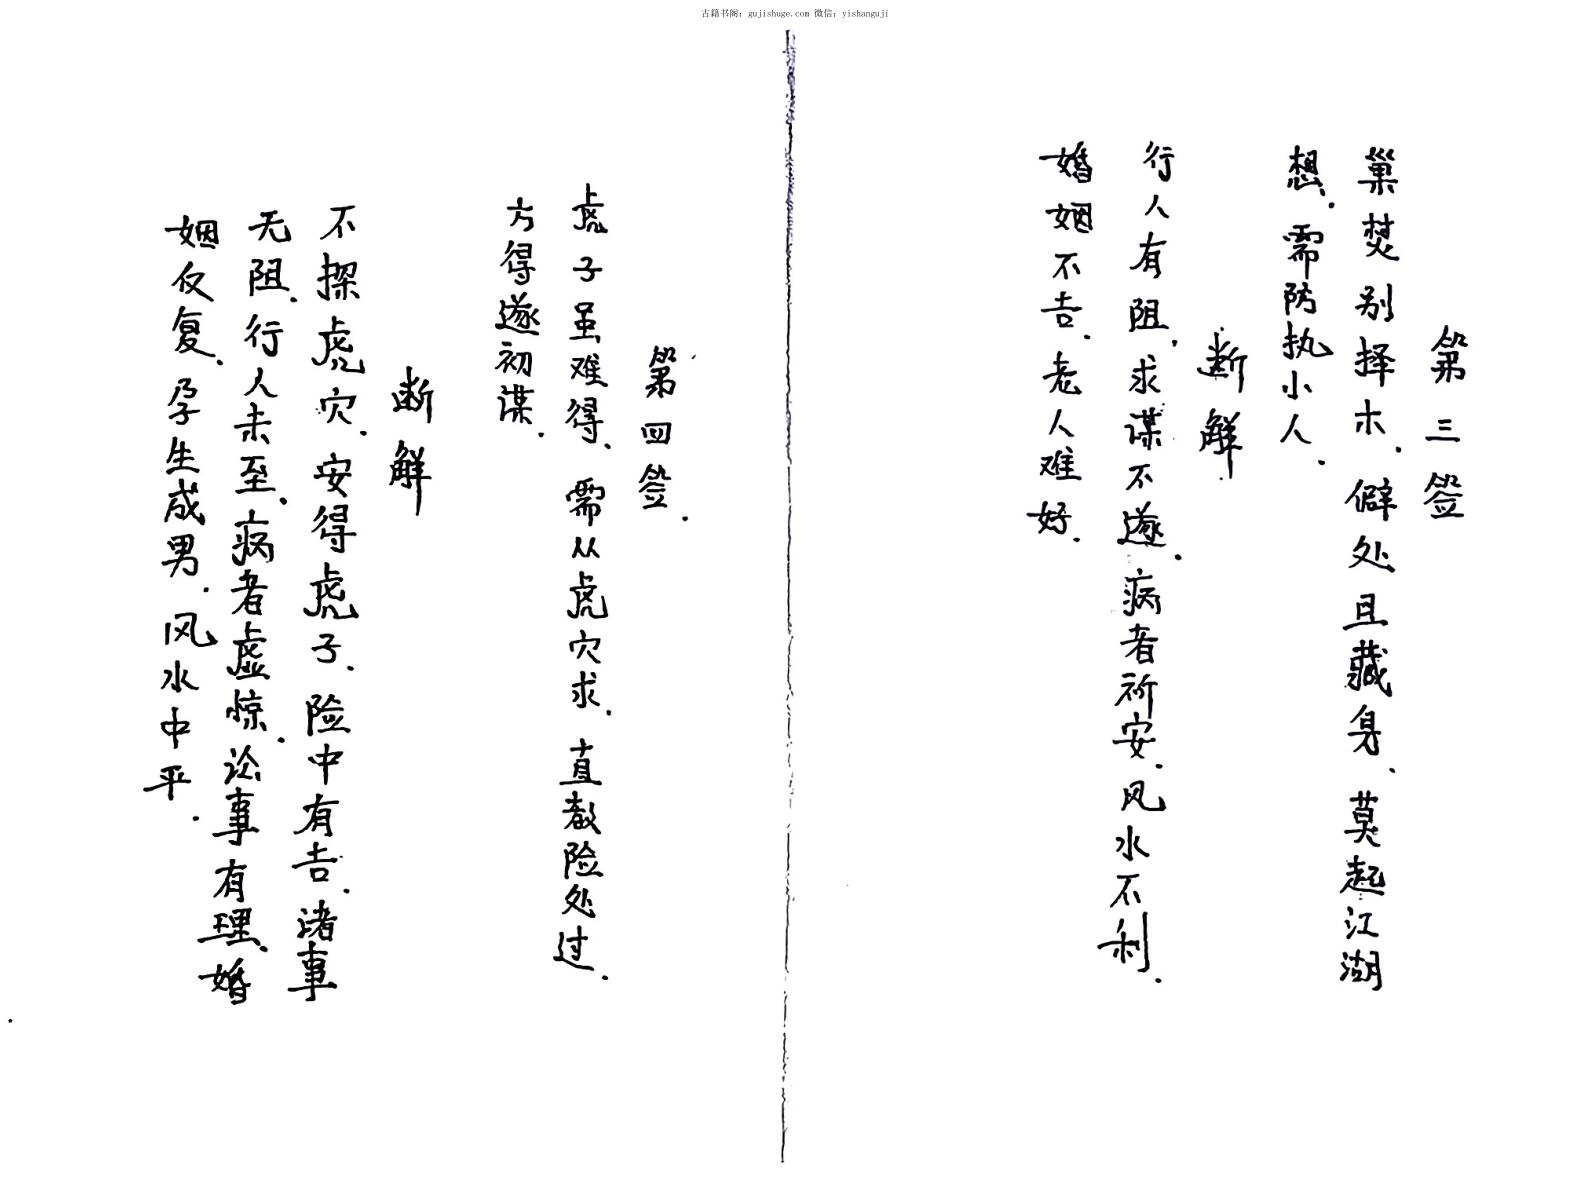 古籍书阁：gujishuge.com 微信：yishanguji
第三签
巢焚别择木．僻处且藏身．莫起江湖
想．需防执小人．
断解
行人有阻．求谋不遂．病者祈安．风水不利．
婚姻不吉．老人难好．
第四签．
虎子虽难得．需从虎穴求．直教险处过．
方得遂初谋．
断解
不探虎穴．安得虎子．险中有吉．诸事
无阻．行人未至．病者虚惊．讼事有理．婚
姻反复．孕生成男．风水中平．